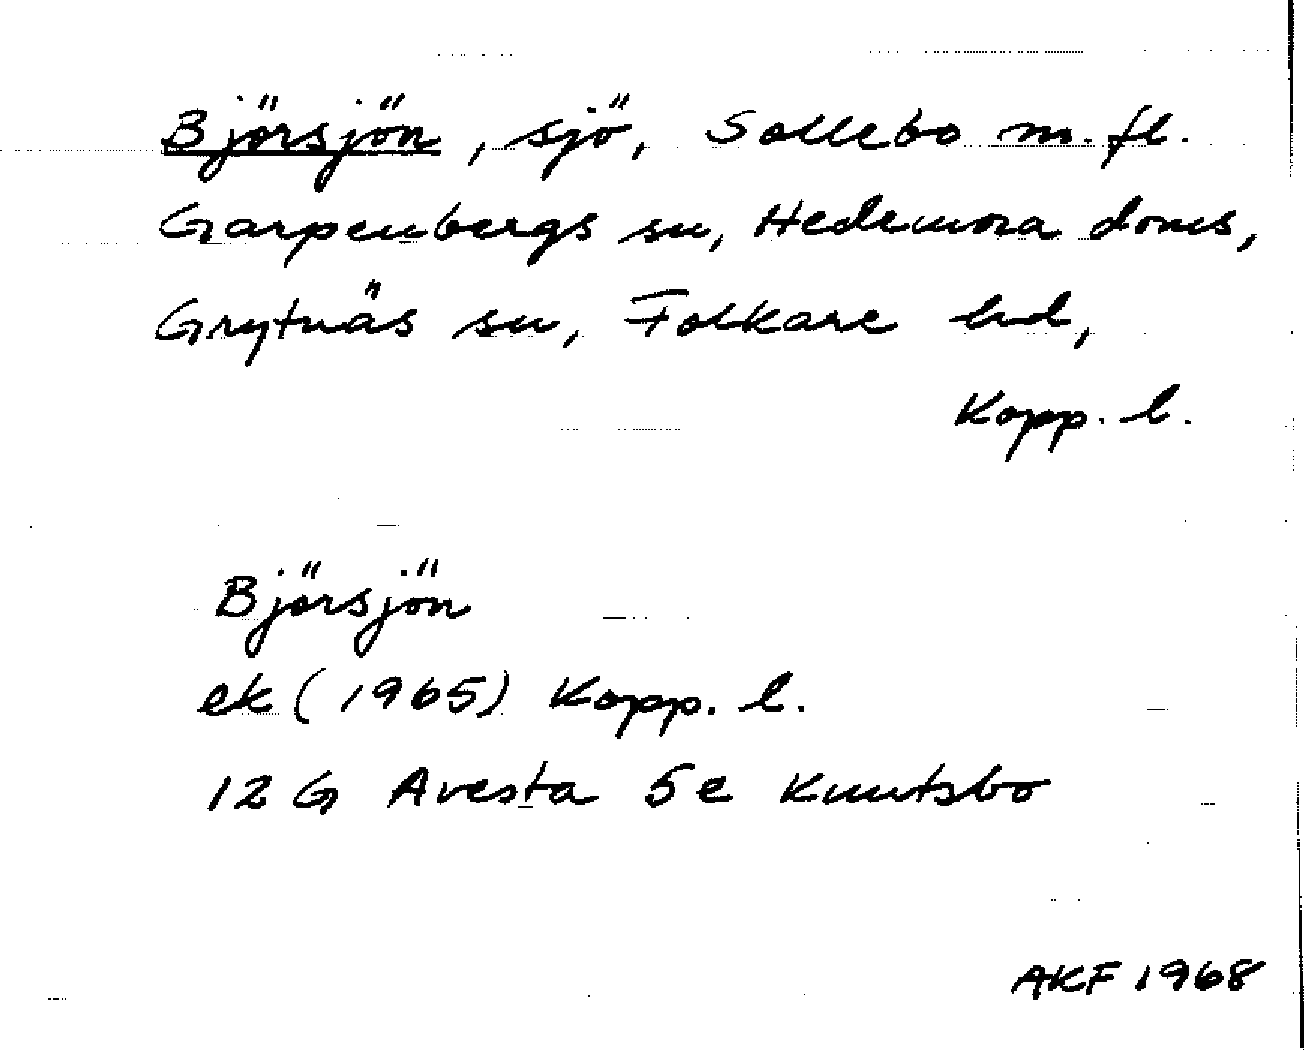 Björsjön, sjö, Sollebo m.fl.
Garpenbergs sn, Hedemora doms,
Grytnäs sn, Folkare hd,
Kopp. l.
Björsjön
ek (1965) Kopp. l.
12 G Avesta 5e Knutsbo
AKF 1968